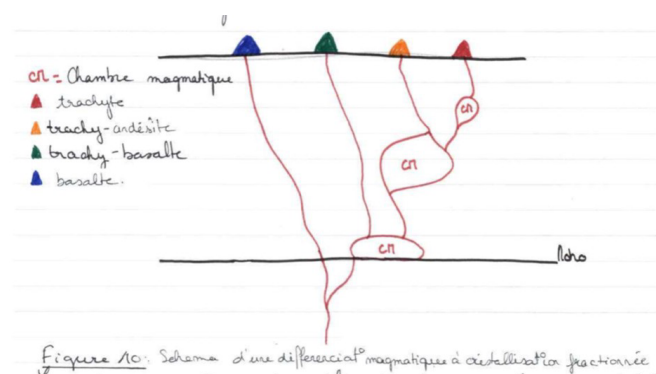 CM = Chambre magmatique
trachyte
trachy-andésite
trachy-basalte
basalte.
CM
CM
CM
Moho
Figure 10: Schema d'une differenciat° magmatique à cristallisat° fractionnée